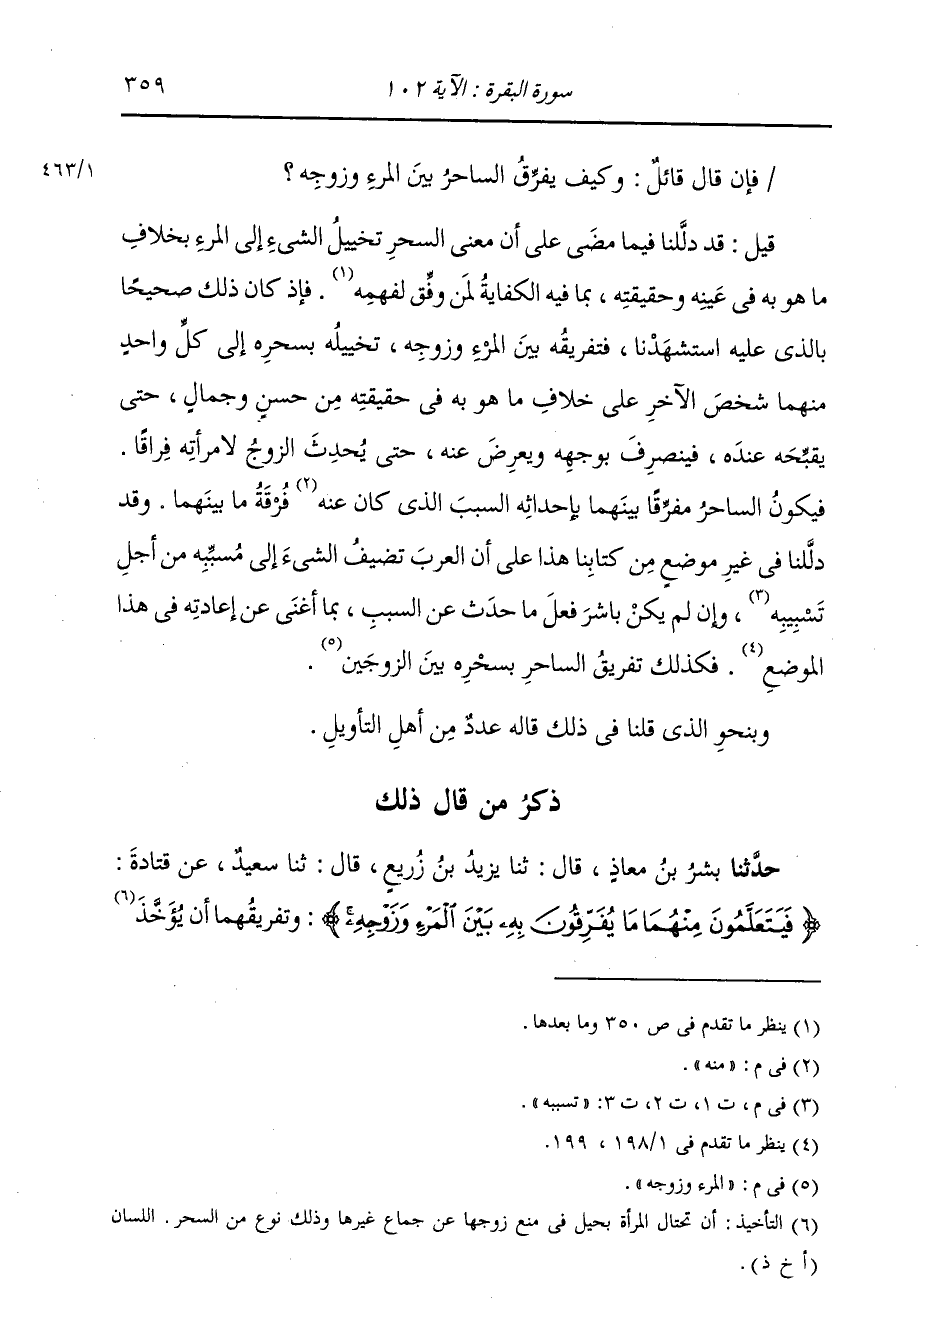 سورة البقرة : الآية ١٠٢ ٣٥٩
/ فإن قال قائلٌ : وكيف يفرِّقُ الساحرُ بينَ المرءِ وزوجِه ؟ ٤٦٣/١
قيل : قد دلَّلنا فيما مضَى على أن معنى السحرِ تخييلُ الشىءِ إلى المرءِ بخلافِ
ما هو به فى عَينِه وحقيقتِه ، بما فيه الكفايةُ لمَن وفِّق لفهمِه(١) . فإذ كان ذلك صحيحًا
بالذى عليه استشهَدْنا ، فتفريقُه بينَ المرْءِ وزوجِه ، تخييلُه بسحرِه إلى كلِّ واحدٍ
منهما شخصَ الآخرِ على خلافِ ما هو به فى حقيقتِه مِن حسنٍ وجمالٍ ، حتى
يقبِّحَه عندَه ، فينصرِفَ بوجهِه ويعرِضَ عنه ، حتى يُحدِثَ الزوجُ لامرأتِه فِراقًا .
فيكونُ الساحرُ مفرِّقًا بينَهما بإحداثِه السببَ الذى كان عنه(٢) فُرْقَةُ ما بينَهما . وقد
دلَّلنا فى غيرِ موضعٍ مِن كتابِنا هذا على أن العربَ تضيفُ الشىءَ إلى مُسبِّبِه من أجلِ
تَسْبِيبِه(٣) ، وإن لم يكنْ باشرَ فعلَ ما حدَث عن السببِ ، بما أغنَى عن إعادتِه فى هذا
الموضعِ(٤) . فكذلك تفريقُ الساحرِ بسحْرِه بينَ الزوجَين(٥) .
وبنحوِ الذى قلنا فى ذلك قاله عددٌ مِن أهلِ التأويلِ .
ذكرُ من قال ذلك
حدَّثنا بشرُ بنُ معاذٍ ، قال : ثنا يزيدُ بنُ زُريعٍ ، قال : ثنا سعيدٌ ، عن قتادةَ :
﴿ فَيَتَعَلَّمُونَ مِنْهُمَا مَا يُفَرِّقُونَ بِهِۦ بَيْنَ ٱلْمَرْءِ وَزَوْجِهِۦۚ ﴾ : وتفريقُهما أن يُؤَخَّذَ(٦)
(١) ينظر ما تقدم فى ص ٣٥٠ وما بعدها .
(٢) فى م : « منه » .
(٣) فى م ، ت ١، ت ٢، ت ٣: « تسببه » .
(٤) ينظر ما تقدم فى ١٩٨/١ ، ١٩٩.
(٥) فى م : « المرء وزوجه » .
(٦) التأخيذ : أن تحتال المرأة بحيل فى منع زوجها عن جماع غيرها وذلك نوع من السحر . اللسان
(أ خ ذ) .